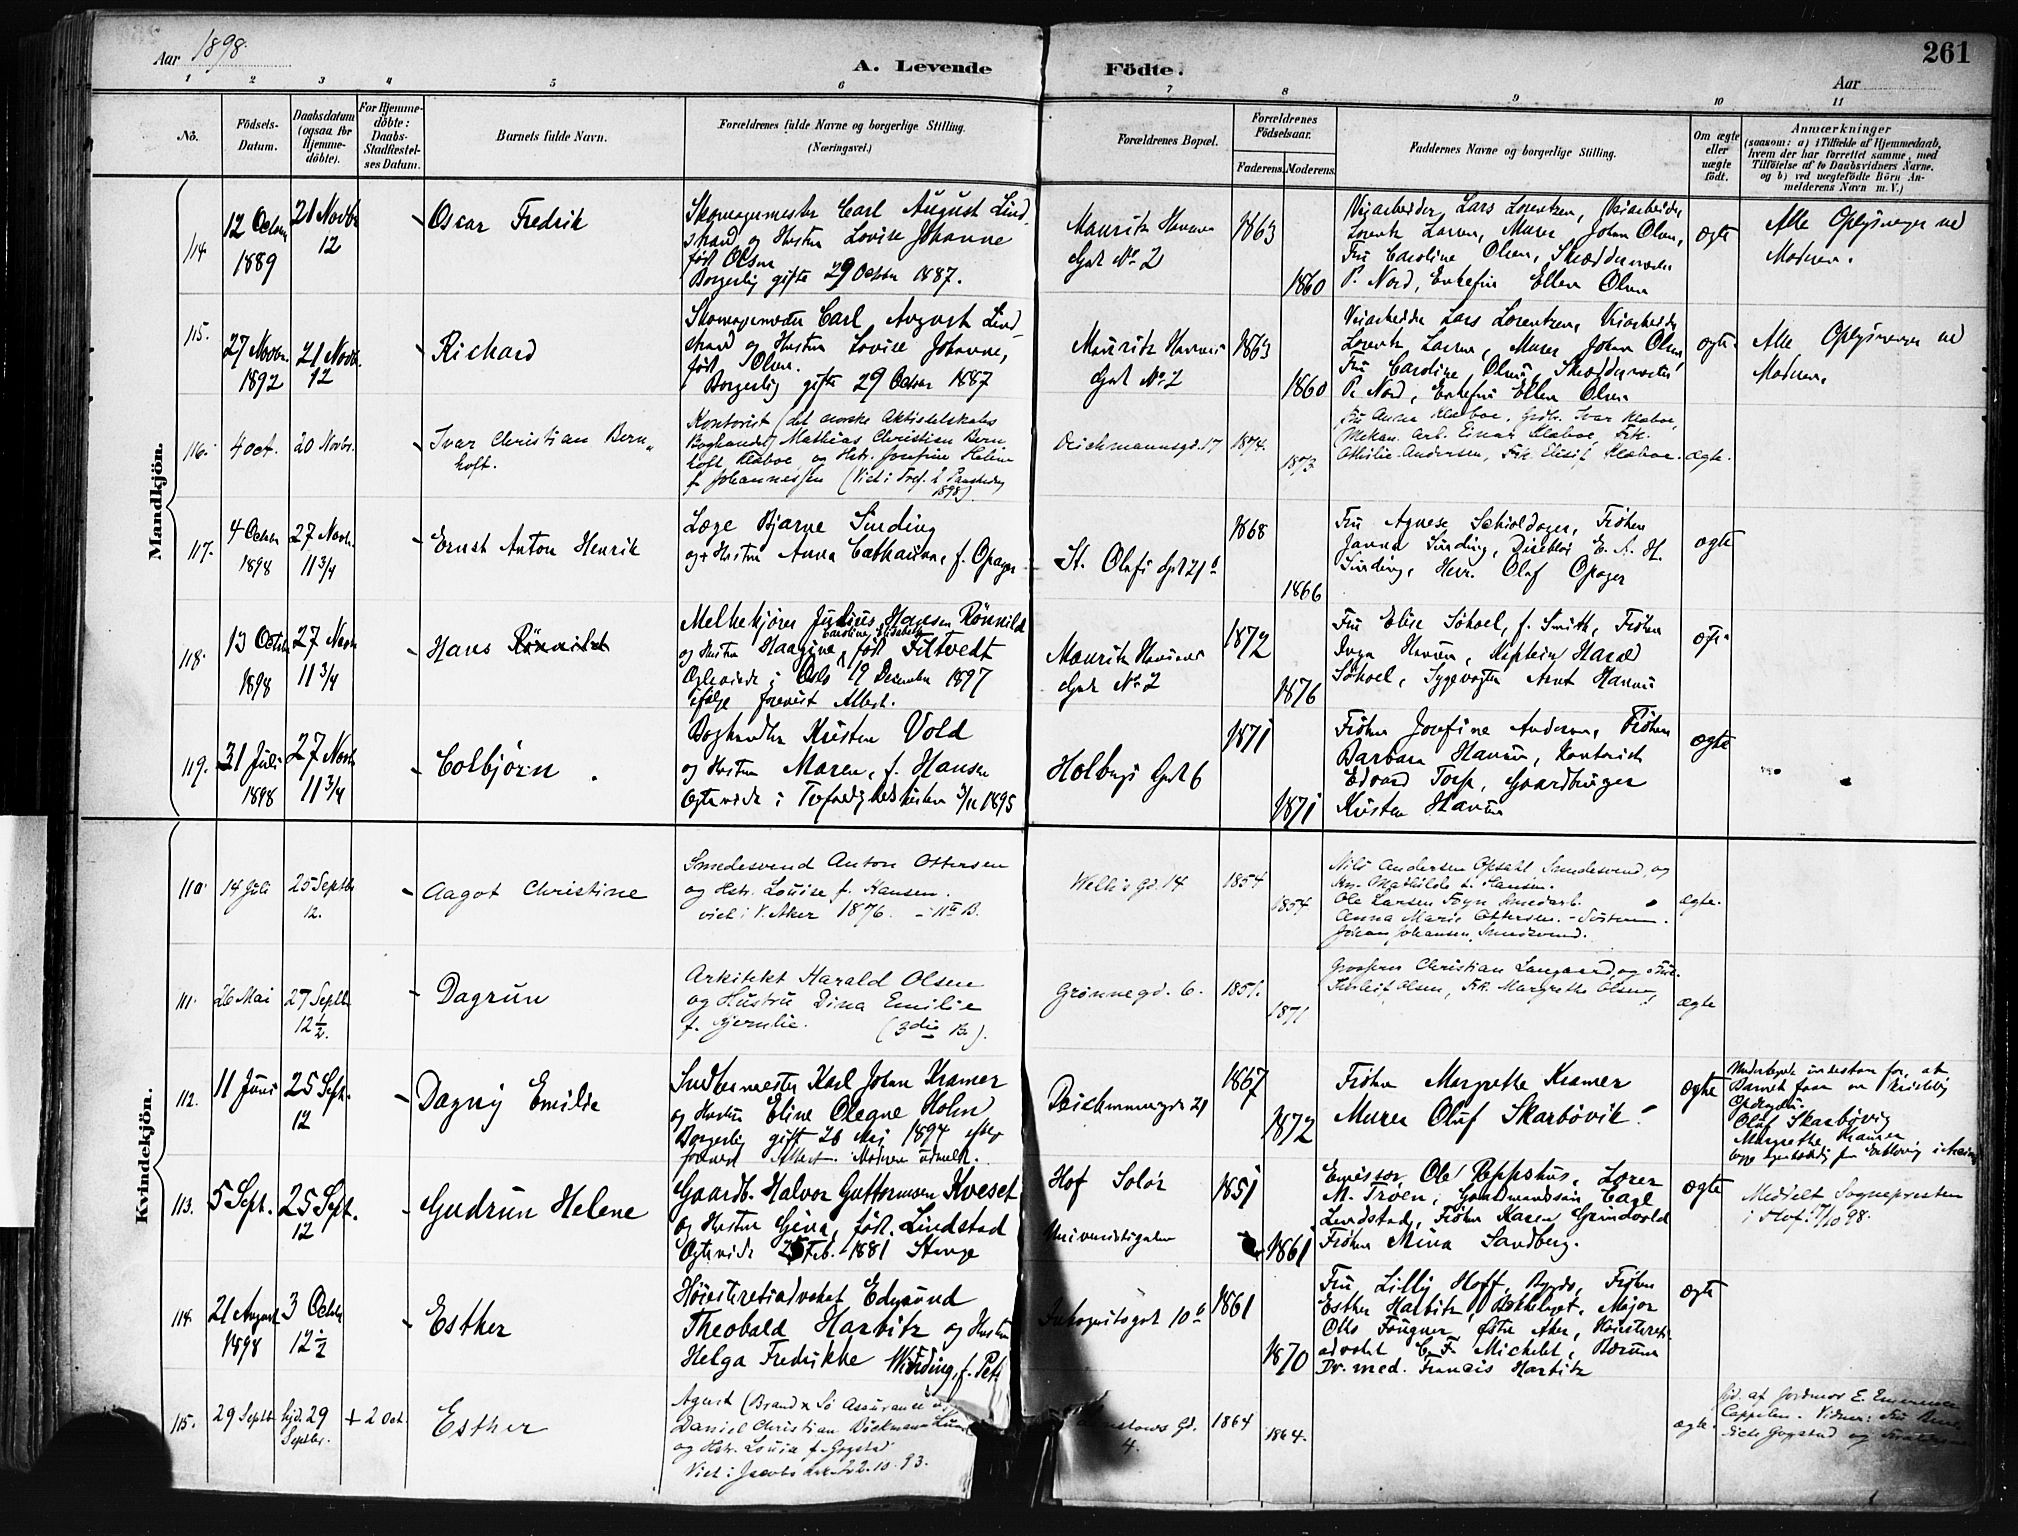 Aar 1898.
A. Levende Födte.
261
Aar
1 2 3 4 5 6 7 8 9 10 11
No.
Födsels-Datum.
Daabsdatum (ogsaa for Hjemme-döbte).
For Hjemme-döbte: Daabs-Stadfæstel-ses Datum.
Barnets fulde Navn.
Forældrenes fulde Navne og borgerlige Stilling.
(Næringsvei.)
Forældrenes Bopæl.
Forældrenes Födselsaar.
Faderens. Moderens.
Faddernes Navne og borgerlige Stilling.
Om ægte eller uægte födt.
Anmærkninger
(saasom: a) i Tilfælde af Hjemmedaab, hvem der har forrettet samme, med Tilföielse af to Daabsvidners Navne, og b) ved uægtefödte Börn An-melderens Navn m. V.)
Mandkjön.
114
12 Octbr 1889
21 Novbr 12
Oscar Fredrik
Skomagermester Carl August Lind
strand og Hustru Lovise Johanne
født Olsen
Borgerlig gifte 29 Octbr 1887.
Mauritz Hansens
Gade No 2
1863
1860
Veiarbeider Lars Lorentzen, Veiarbeider
Lorentz Larsen, Murer Johan Olsen,
Fru Caroline Olsen, Skræddermester
P. Nord, Enkefru Ellen Olsen
ægte
Alle Oplysninger ved
Moderen.
115.
27 Novbr. 1892
21 Novbr. 12
Richard
Skomagermester Carl August Lind
strand og Hustru Lovise Johanne,
født Olsen.
Borgerlig gifte 29 Octbr 1887
Mauritz Hansens
Gade No. 2
1863
1860
Veiarbeider Lars Lorentzen, Veiarbeider
Lorentz Larsen, Murer Johan Olsen,
Fru Caroline Olsen, Skræddermester
P. Nord, Enkefru Ellen Olsen
ægte
Alle Oplysninger ved
Moderen.
116.
4 Oct.
20 Novbr.
Ivar Christian Bern„
hoft.
Kontorist (det norske Aktieselskabs
Boghandel) Mathias Christian Bern
hoft Klaboe og Hstr. Josefine Helene
f. Johannessen (Viet i Tref.
1898).
Deichmannsgd. 17
1874.
1873
Fru Anna Klaboe, Grdb. Ivar Klaboe,
Mekan. Arb. Einar Klaboe, Frk.
Othilie Andersen, Frk. Elisif Klaboe.
ægte.
117.
4 Octbr. 1898
27 Novbr. 11 3/4
Ernst Anton Henrik
Læge Bjarne Sinding
og Hustru Anna Catharina, f. Opager
St. Olafs Gade 21
1868
1866
Fru Agnese Schioldager, Frøken
Janna Sinding, Direktør E. A. H.
Sinding, Herr. Olaf Opager
ægte
118.
13 Octbr 1898
27 Novbr 11 3/4
Hans Rönnild
Melkekjører Julius Hansen Rönnild
og Hustru Haagine Caroline Elisabeth født Fittvedt
Ægteviede i Oslo 19 December 1897
ifølge forevist Attest.
Mauritz Hansens
Gade No. 2
1872
1876
Fru Elise Søhoel, f. Smith, Frøken
Inga Hansen, Kaptein Harald
Søhoel, Sygevogter Arnt Hansen
ægte
119.
31 Juli 1898
27 Novbr 11 3/4
Colbjörn.
Boghandler Kristen Vold
og Hustru Maren, f. Hansen
Ægteviede i Trefoldighedskirken 3/11 1895
Holbergs Gade 6
1871
1871
Frøken Josefine Andersen, Frøken
Barbara Hansen, Kontorist
Edvard Torp, Gaardbruger
Kristen Hansen
ægte
Kvindekjön.
110.
14 Juli
25 Septbr 12.
Aagot Christine
Smedesvend Anton Ottersen
og Hstr. Louise f. Hansen.
viet i V. Aker 1876. - 11te B.
Welhavs Gd. 14
1854
1854
Nils Andersen Opsahl, Smedesvend, og
Mathilde f. Hansen.
Ole Larsen Foyn Smedarb.
Anna Marie Ottersen. - Søstren.
Johan Johansen, Smedesvend.
ægte.
111.
26 Mai
27 Septbr 12 1/2.
Dagrun
Arkitekt Harald Olsen
og Hustru Dina Emilie
f. Bjernlie. (3die B.).
Grønnegd. 6.
1851.
1871
Grosserer Christian Langaard, og Frk.
Thorleif Olsen, Frk. Margrethe Olsen,
ægte
112.
11 Juni
25 Sept. 12
Dagny Emilie
Snedkermester Karl Johan Kramer
og Hustru Eline Olegne Holm
Borgerlig gift 26 Mai 1894 efter
forevist Attest. Moderen udmeldt.
Deichmannsgade 21
1867
1872
Frøken Margrethe Kramer
Murer Oluf Skarbövik.
ægte
Undertegnede indestaar for, at
Barnet faar en kristelig
Opdragelse.
Oluf Skarbövig
Margrethe Kramer
113.
5 Sept.
25 Sept. 12
Gudrun Helene
Gaardb. Halvor Guttormsen Kveset
og Hustru Gina, født Lindstad
Ægteviede 25 Feb. 1881 Stange
Hof Solör
Universitetsgaden
1851
1861
Ole Peppshus, Lærer
M. Troen, Gaardmandssøn Carl
Lindstad, Frøken Karen Grindvold
Frøken Mina Sandberg.
ægte
Meddelt Sognepresten
i Hof. 7/10 98.
114.
21 August 1898
3 Octbr 12 1/2
Esther
Høiesteretsadvokat Edmund
Theobald Harbitz og Hustru
Helga Fredrikke Winding, f. Pet
10
1861
1870
Fru Lilly Hoff, Bygdø, Frøken
Esther Harbitz, Bækkelaget, Major
Otto Fougner, Østre Aker, Høiesterets-
advokat C. F. Michelet, Bærum
Dr. med. Francis Harbitz
ægte
115.
29 Septbr
hjd. 29 Septbr.
+ 2 Oct.
Esther
Agent (Brand & Sø Assurance)
Daniel Christian Böckmann Lund
og Hstr. Louisa f. Gogstad
Viet i Jacobs kirke 22.10.93.
Gd.
4.
1864
1864.
ægte.
hjd. af Jordmor E. Emerence
Cappelen. Vidner: Fru
Gogstad og